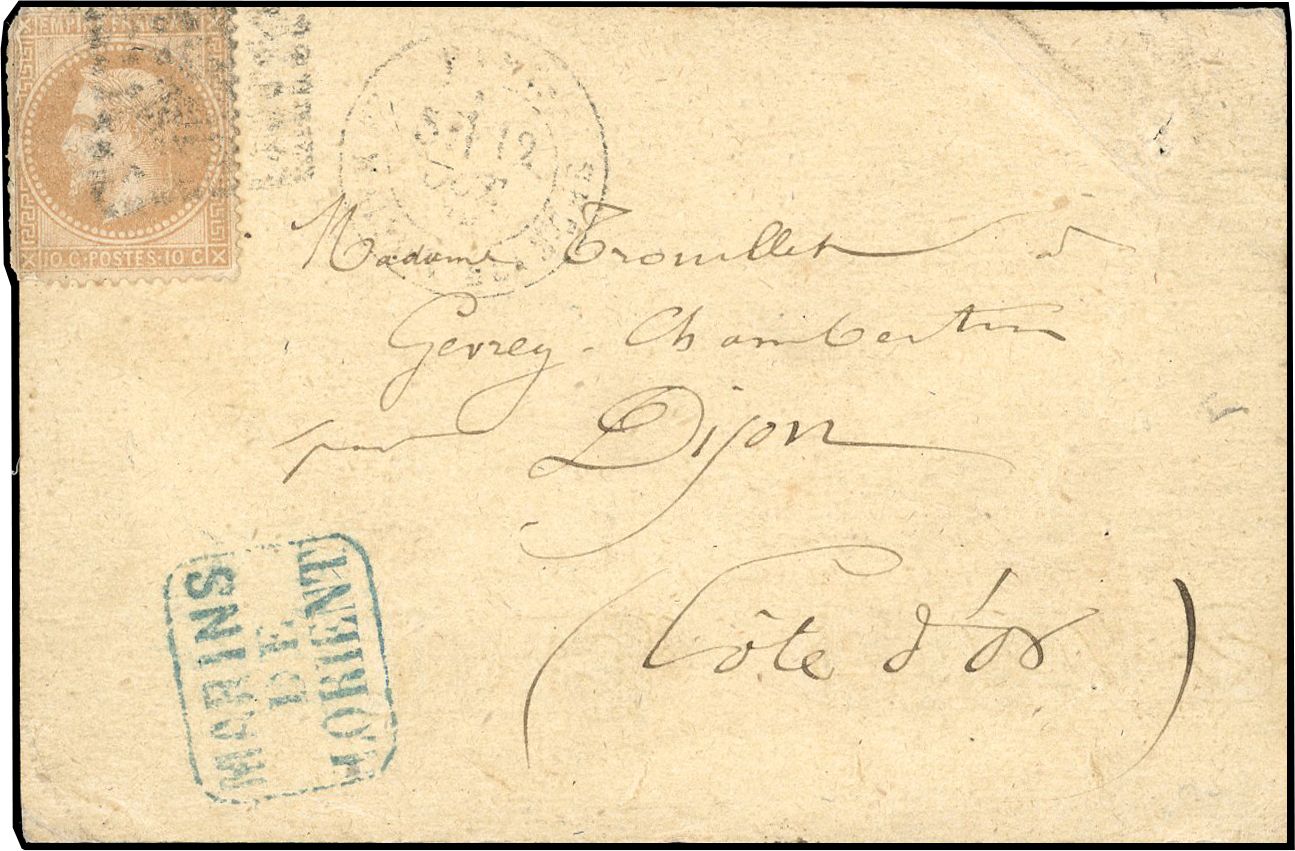 EMPIRE FRANC
10 C·POSTES·10 C
12
Madame Trouillet à
Gevrey-Chambertin
par Dijon
(Côte d'Or)
MARINS
DE
LORIENT